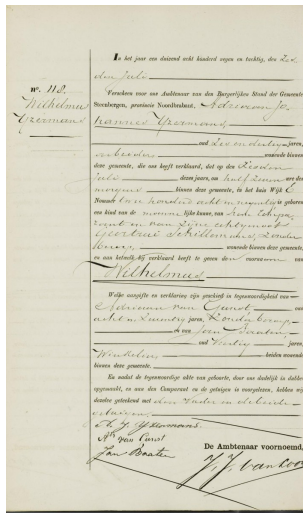 In het jaar een duizend acht honderd zeven en tachtig, den Zes
den Juli
Verscheen voor ons Ambtenaar van den Burgerlijken Stand der Gemeente
Steenbergen, provincie Noordbrabant, Adriaan Jo
hannes IJzermans
oud jaren,
arbeider wonende binnen
deze gemeente, die ons heeft verklaard, dat op den
Juli dezes jaars, om half ure des
morgens binnen deze gemeente, in het huis Wijk
Nommer twee honderd acht en negentig is geboren
een kind van de mannelijke kunne, van
en van zijne echtgenoot
Geertrui zonder
beroep, wonende binnen deze gemeente,
en aan hetwelk hij verklaard heeft te geven den voornaam van
Wilhelmus
no. 118.
Wilhelmus
IJzermans
Welke aangifte en verklaring zijn geschied in tegenwoordigheid van
Adriaan van Gunst
jaren, zonder beroep
en van Jan Baaten
oud Veertig jaren,
Winkelier beiden wonende
binnen deze gemeente.
En nadat de tegenwoordige akte van geboorte, door ons dadelijk in dubbel
opgemaakt, en aan den Comparant en de getuigen is voorgelezen, hebben wij
dezelve geteekend met den Vader en de beide
getuigen.
A. J. IJzermans
A. van Gunst
Jan Baaten
De Ambtenaar voornoemd,